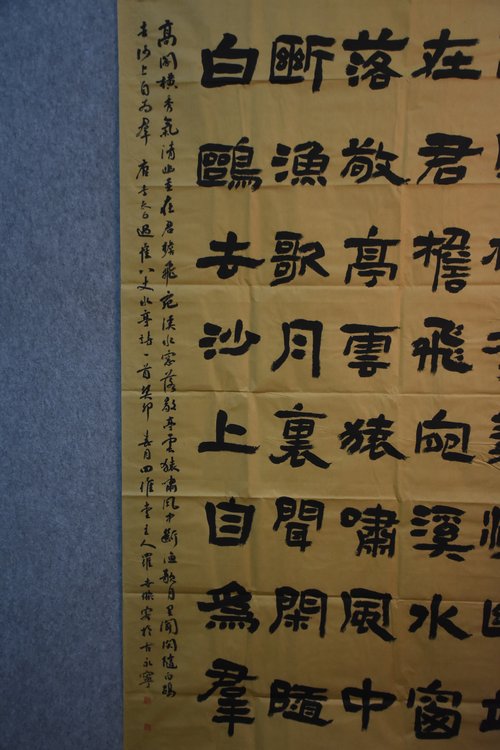 在君檐飛宛溪水窗
落敬亭雲猿嘯風中
斷漁歌月裏聞閑隨
白鷗去沙上自為羣
高閣橫秀氣清幽並在君檐飛宛溪水窗落敬亭雲猿嘯風中斷漁歌月裏聞閑隨白鷗
去沙上自為羣 唐李白過崔八丈水亭詩一首癸卯春月四維堂主人羅傑寫於古永寧